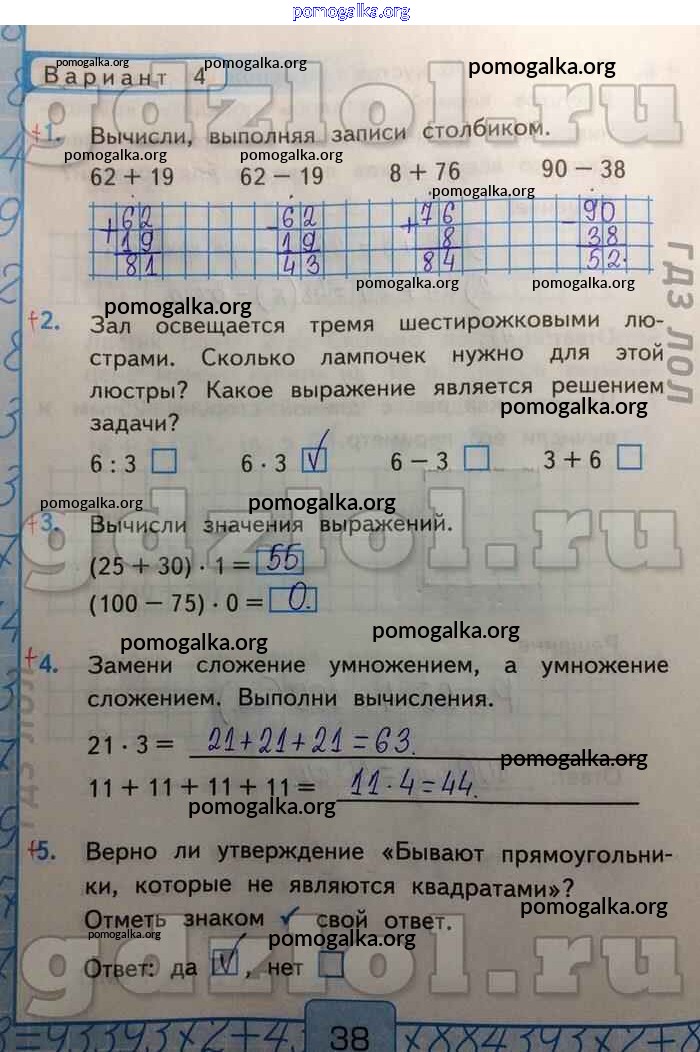 pomogalka.org
Вариант 4
pomogalka.org
pomogalka.org
gdzlol.ru
+1. Вычисли, выполняя записи столбиком.
pomogalka.org
pomogalka.org
62 + 19 62 − 19 8 + 76 90 − 38
pomogalka.org
+62 −62 +76 −90
19 19 8 38
81 43 84 52.
pomogalka.org
pomogalka.org
ГДЗ ЛОЛ
pomogalka.org
+2. Зал освещается тремя шестирожковыми лю-
страми. Сколько лампочек нужно для этой
люстры? Какое выражение является решением
pomogalka.org
задачи?
6 : 3 6 · 3 V 6 − 3 3 + 6
pomogalka.org
pomogalka.org
gdzlol.ru
+3. Вычисли значения выражений.
(25 + 30) · 1 = 55
(100 − 75) · 0 = 0.
pomogalka.org
pomogalka.org
+4. Замени сложение умножением, а умножение
сложением. Выполни вычисления.
ГДЗ ЛОЛ
21 · 3 = 21+21+21=63.
pomogalka.org
11 + 11 + 11 + 11 = 11·4=44.
pomogalka.org
+5. Верно ли утверждение «Бывают прямоугольни-
ки, которые не являются квадратами»?
pomogalka.org
Отметь знаком ✓ свой ответ.
pomogalka.org
pomogalka.org
gdzlol.ru
Ответ: да V , нет
38